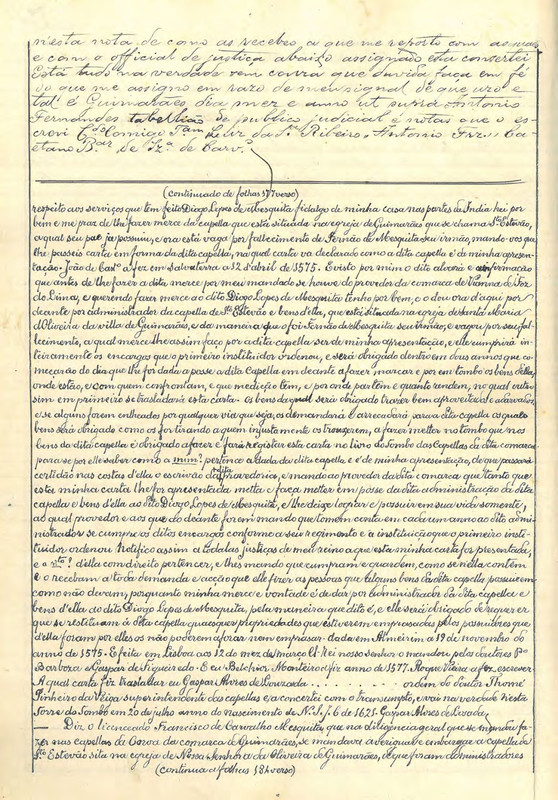 n'esta nota de como as recebeo a que me reporto com as mais
e com o official de justiça abaixo assignado esta consertei
Está tudo na verdade sem cousa que duvida faça em fé
do que me assigno em razo de meu signal de que uzo e
tal! é Guimarães dia mez e anno ut supra Antonio
Fernandes tabellião de publico judicial e notas que o es-
crevi Comigo Tam Luiz da Sª Ribeiro. Antonio Frz..
etano de de Carvº.
(continuado de folhas 177 verso)
respeito aos serviços que têm feito Diogo Lopes de Mesquita fidalgo de minha casa nas partes da India hei por
bem e me praz de lhe fazer merce da capella que está situada na egreja de Guimarães que se chama Stº Estevão,
a qual seu pae já possuiu, e ora está vaga por fallecimento de Fernão de Mesquita seu irmão, mando-vos que
lhe passeis carta em forma da dita capella, na qual carta va declarado como a dita capella é da minha apresen-
tação. João de Castº a fez em Salvaterra a 12 d'abril de 1575. E visto por mim o dito alvará e a informação
que antes de lhe fazer a dita merce por meu mandado se houve do provedor da comarca de Vianna de Foz
do Lima, e querendo fazer merce ao dito Diogo Lopes de Mesquita tenho por bem, e o dou ora d'aqui por
deante por administrador da capella de Stº Estevão e bens d'ella, que está situada na egreja de Santa Maria
d'Oliveira da villa de Guimarães, e da maneira que o foi Fernão de Mesquita seu irmão, e vagou por seu fal-
lecimento, a qual merce lhe assim faço por a dita capella ser de minha apresentação, e elle cumprirá in-
teiramente os encargos que o primeiro instituidor ordenou, e será obrigado dentro em dous annos que co-
meçarão do dia que lhe for dada a posse a dita Capella em deante a fazer marcar e por em tombo os bens d'ella,
onde estão, e com quem confrontam, e que medição tem, e por onde partem e quanto rendem, no qual outro
sim em primeiro se trasladará esta carta. os bens da qual será obrigado trazer bem aproveitados e adornados,
e se alguns forem enlheados por qualquer via que seja, os demandará e arrecadará para a dita capella os quaes
bens será obrigado como os for tirando a quem injustamente os trouxerem, a fazer metter no tombo que nos
bens da dita capella é obrigado a fazer e fará registar esta carta no livro do Tombo das Capellas da dita comarca
para se por elle saber como a mim? pertence a dada da dita capella e é de minha apresentação, de que passará
certidão nas costas d'ella o escrivão da dita provedoria, e mando ao provedor da dita comarca que tanto que
esta minha carta lhe for apresentada metta e faça metter em posse da dita administração da dita
capella e bens d'ella ao dito Diogo Lopes de Mesquita, e lhe deixe lograr e possuir em sua vida somente,
ao qual provedor e aos que ao deante forem mando que tomem conta em cada um anno ao dito admi-
nistrador se cumpre os ditos encargos conforme a seu regimento e a instituição que o primeiro insti-
tuidor ordenou Notifico assim a todalas justiças de meu reino a que esta minha carta for presentada,
e o d'ella com direito pertencer, e lhes mando que cumpram e guardem, como se n'ella contém
e o recebam a toda demanda e acção que elle fizer as pessoas que alguns bens da dita capella possuirem
como não devam, porquanto minha merce e vontade é de dar por administrador da dita capella e
bens d'ella do dito Diogo Lopes de Mesquita, pela maneira que dito é, e elle será obrigado de requerer
que se restituam á dita capella quaesquer propriedades que estiverem emprasadas pelos possuidores que
d'ella foram por elles os não poderem aforar nem emprasar. dada em Almeirim a 19 de novembro do
anno de 1575. E feita em Lisboa aos 12 do mez de março El-Rei nosso senhor o mandou pelos doutores Pº
Barbosa e Gaspar de Figueiredo. E eu Belchior Monteiro a fiz anno de 1577. Roque Vieira a fez escrever
A qual carta fiz trasladar eu Gaspar Alvres de Louzada ........... ordem do doutor Thomé
Pinheiro da Veiga superintendente das capellas e a concertei com o transumpto, e vai na verdade N'esta
Torre do Tombo em 20 de julho anno do nascimento de N. S. J. C. de 1621. Gaspar Alvres de Lousada.
— Diz o licenceado Francisco de Carvalho Mesquita, que na diligencia geral que se mandou fa-
zer nas capellas da Coroa da comarca de Guimarães, se mandava averiguar e embargar a capella de
Stº Estevão sita na egreja de Nossa Senhora da Oliveira de Guimarães, de que foram administradores
(continua a folhas 18 verso)